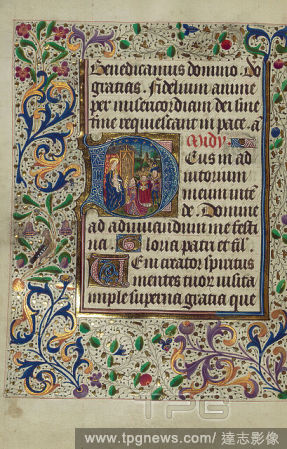 Benedicamus domino. Do
gratias. Fidelium anime
per misericordiam dei sine
fine requiescant in pace. a
Midy
Deus in ad
iutorium
meum inte
de. Domine
ad adiuuandum me festi
na. Gloria patri et fil.
Veni creator spiritus
mentes tuor uisita
imple superna gratia que
TPG
www.tpgnews.com/ 達志影像